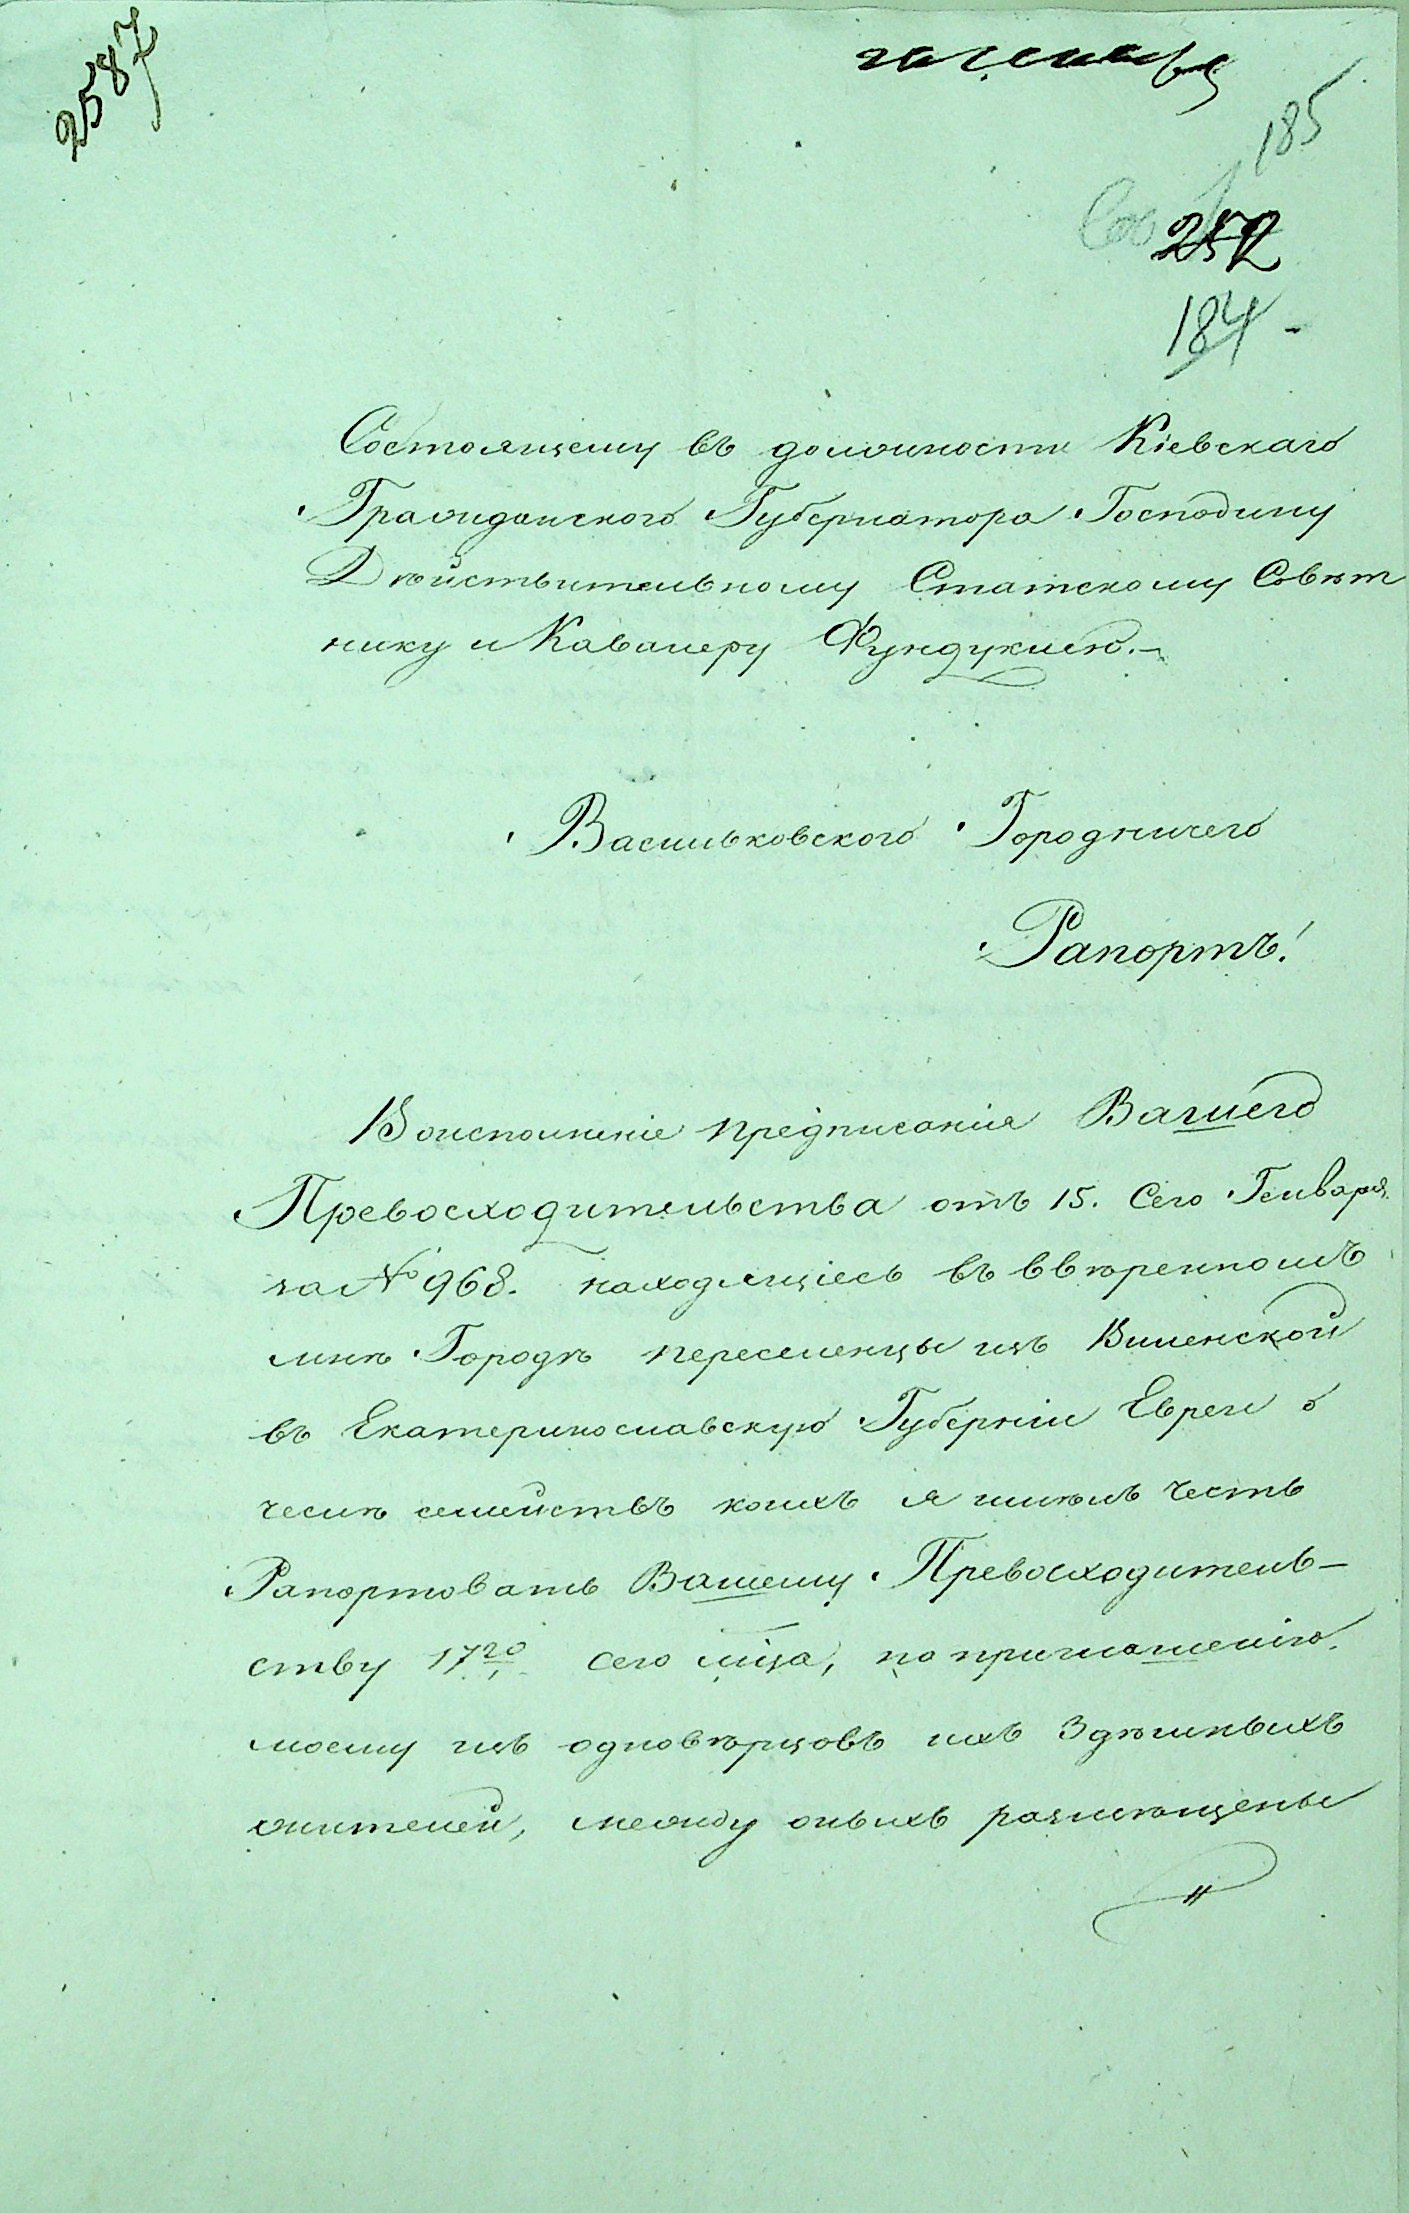 2587
185
252
184 -
Состоящему въ должности Кіевскаго
Гражданского Губернатора Господину
Дѣйствительному Статскому Совѣт
нику и Кавалеру Фундуклею. -
Васильковского Городничего
Рапортъ!
Воисполненіе предписанія Вашего
Превосходительства отъ 15. Сего Генваря
за № 968. находящіесь въ ввѣренномъ
мнѣ Городѣ переселенцы изъ Виленской
въ Екатеринославскую Губерніи Евреи о
числѣ семействъ коихъ я имѣлъ честь
Рапортовать Вашему Превосходитель-
ству 17го сего мца, по приглашенію
моему изъ одновѣрцовъ ихъ Здѣшныхъ
жителей, между оныхъ размѣщены